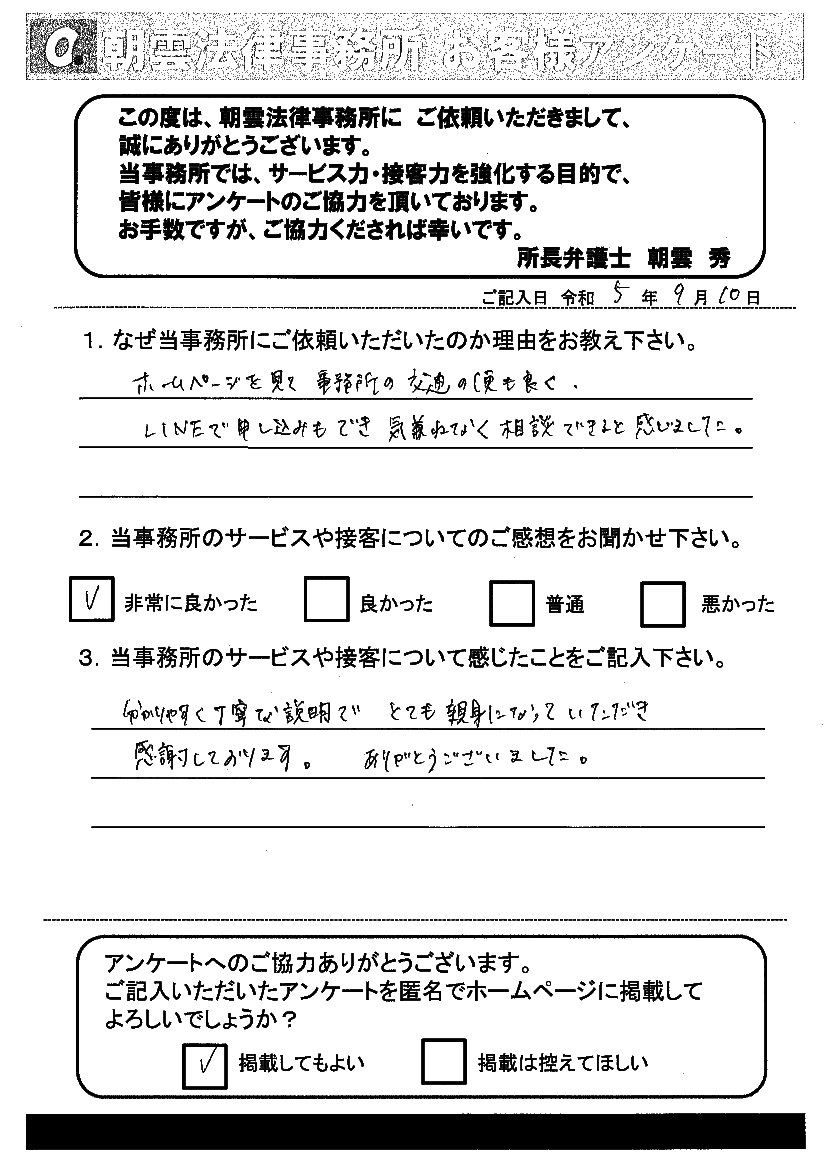 a. 朝雲法律事務所 お客様アンケート
この度は、朝雲法律事務所に ご依頼いただきまして、
誠にありがとうございます。
当事務所では、サービス力・接客力を強化する目的で、
皆様にアンケートのご協力を頂いております。
お手数ですが、ご協力くだされば幸いです。
所長弁護士 朝雲 秀
ご記入日 令和 5 年 9 月 10 日
1. なぜ当事務所にご依頼いただいたのか理由をお教え下さい。
ホームページを見て 事務所の交通の便も良く、
LINEで申し込みもでき 気兼ねなく相談できると感じました。
2. 当事務所のサービスや接客についてのご感想をお聞かせ下さい。
✓ 非常に良かった 良かった 普通 悪かった
3. 当事務所のサービスや接客について感じたことをご記入下さい。
分かりやすく丁寧な説明で とても親身になっていただき
感謝しております。 ありがとうございました。
アンケートへのご協力ありがとうございます。
ご記入いただいたアンケートを匿名でホームページに掲載して
よろしいでしょうか？
✓ 掲載してもよい 掲載は控えてほしい